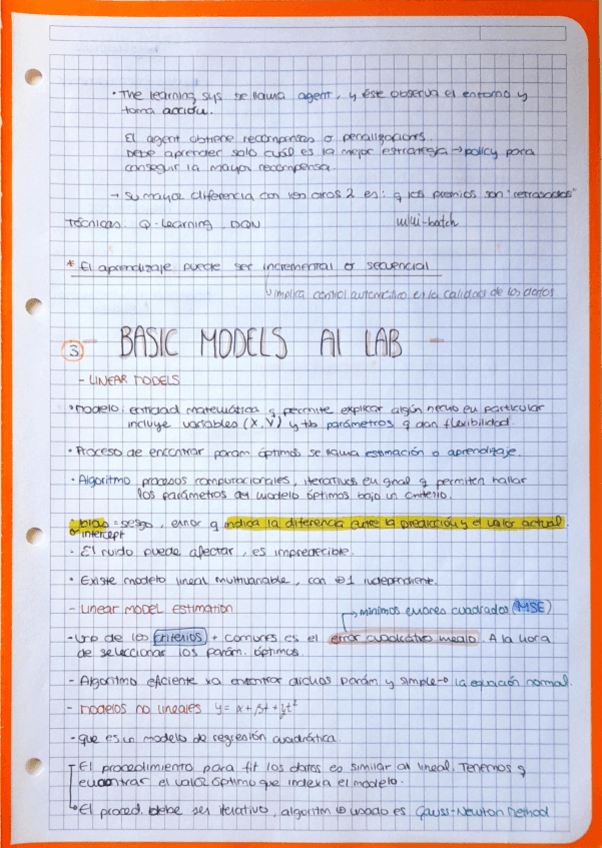 • The learning sys se llama agent, y éste observa el entorno y
toma acción.
El agent obtiene recompensas o penalizaciones.
Debe aprender solo cuál es la mejor estrategia → policy para
conseguir la mayor recompensa.
→ su mayor diferencia con los otros 2 es: q los premios son "retrasados"
Técnicas: Q-Learning, DQN
mini-batch
* El aprendizaje puede ser incremental o secuencial
↳ implica control automático en la calidad de los datos
3 - BASIC MODELS AI LAB -
- LINEAR MODELS
• Modelo: entidad matemática q permite explicar algún hecho en particular
incluye variables (X, Y) y tb parámetros q dan flexibilidad.
• Proceso de encontrar param óptimos se llama estimación o aprendizaje.
• Algoritmo procesos computacionales, iterativos en gnal q permiten hallar
los parámetros del modelo óptimos bajo un criterio.
• bias = sesgo, error q indica la diferencia entre la predicción y el valor actual.
o intercept
• El ruido puede afectar, es impredecible.
• Existe modelo lineal multivariable, con ⊕1 independiente.
- Linear MODEL estimation
→ mínimos errores cuadrados (MSE)
- Uno de los criterios + comunes es el error cuadrático medio. A la hora
de seleccionar los parám. óptimos.
- Algoritmo eficiente xa encontrar dichos parám y simple → la ecuación normal.
- Modelos no lineales
- Que es un modelo de regresión cuadrática.
El procedimiento para fit los datos es similar al lineal. Tenemos q
encontrar el valor óptimo que indexa el modelo.
• El proced. debe ser iterativo, algoritm ⊕ usado es Gauss-Newton Method